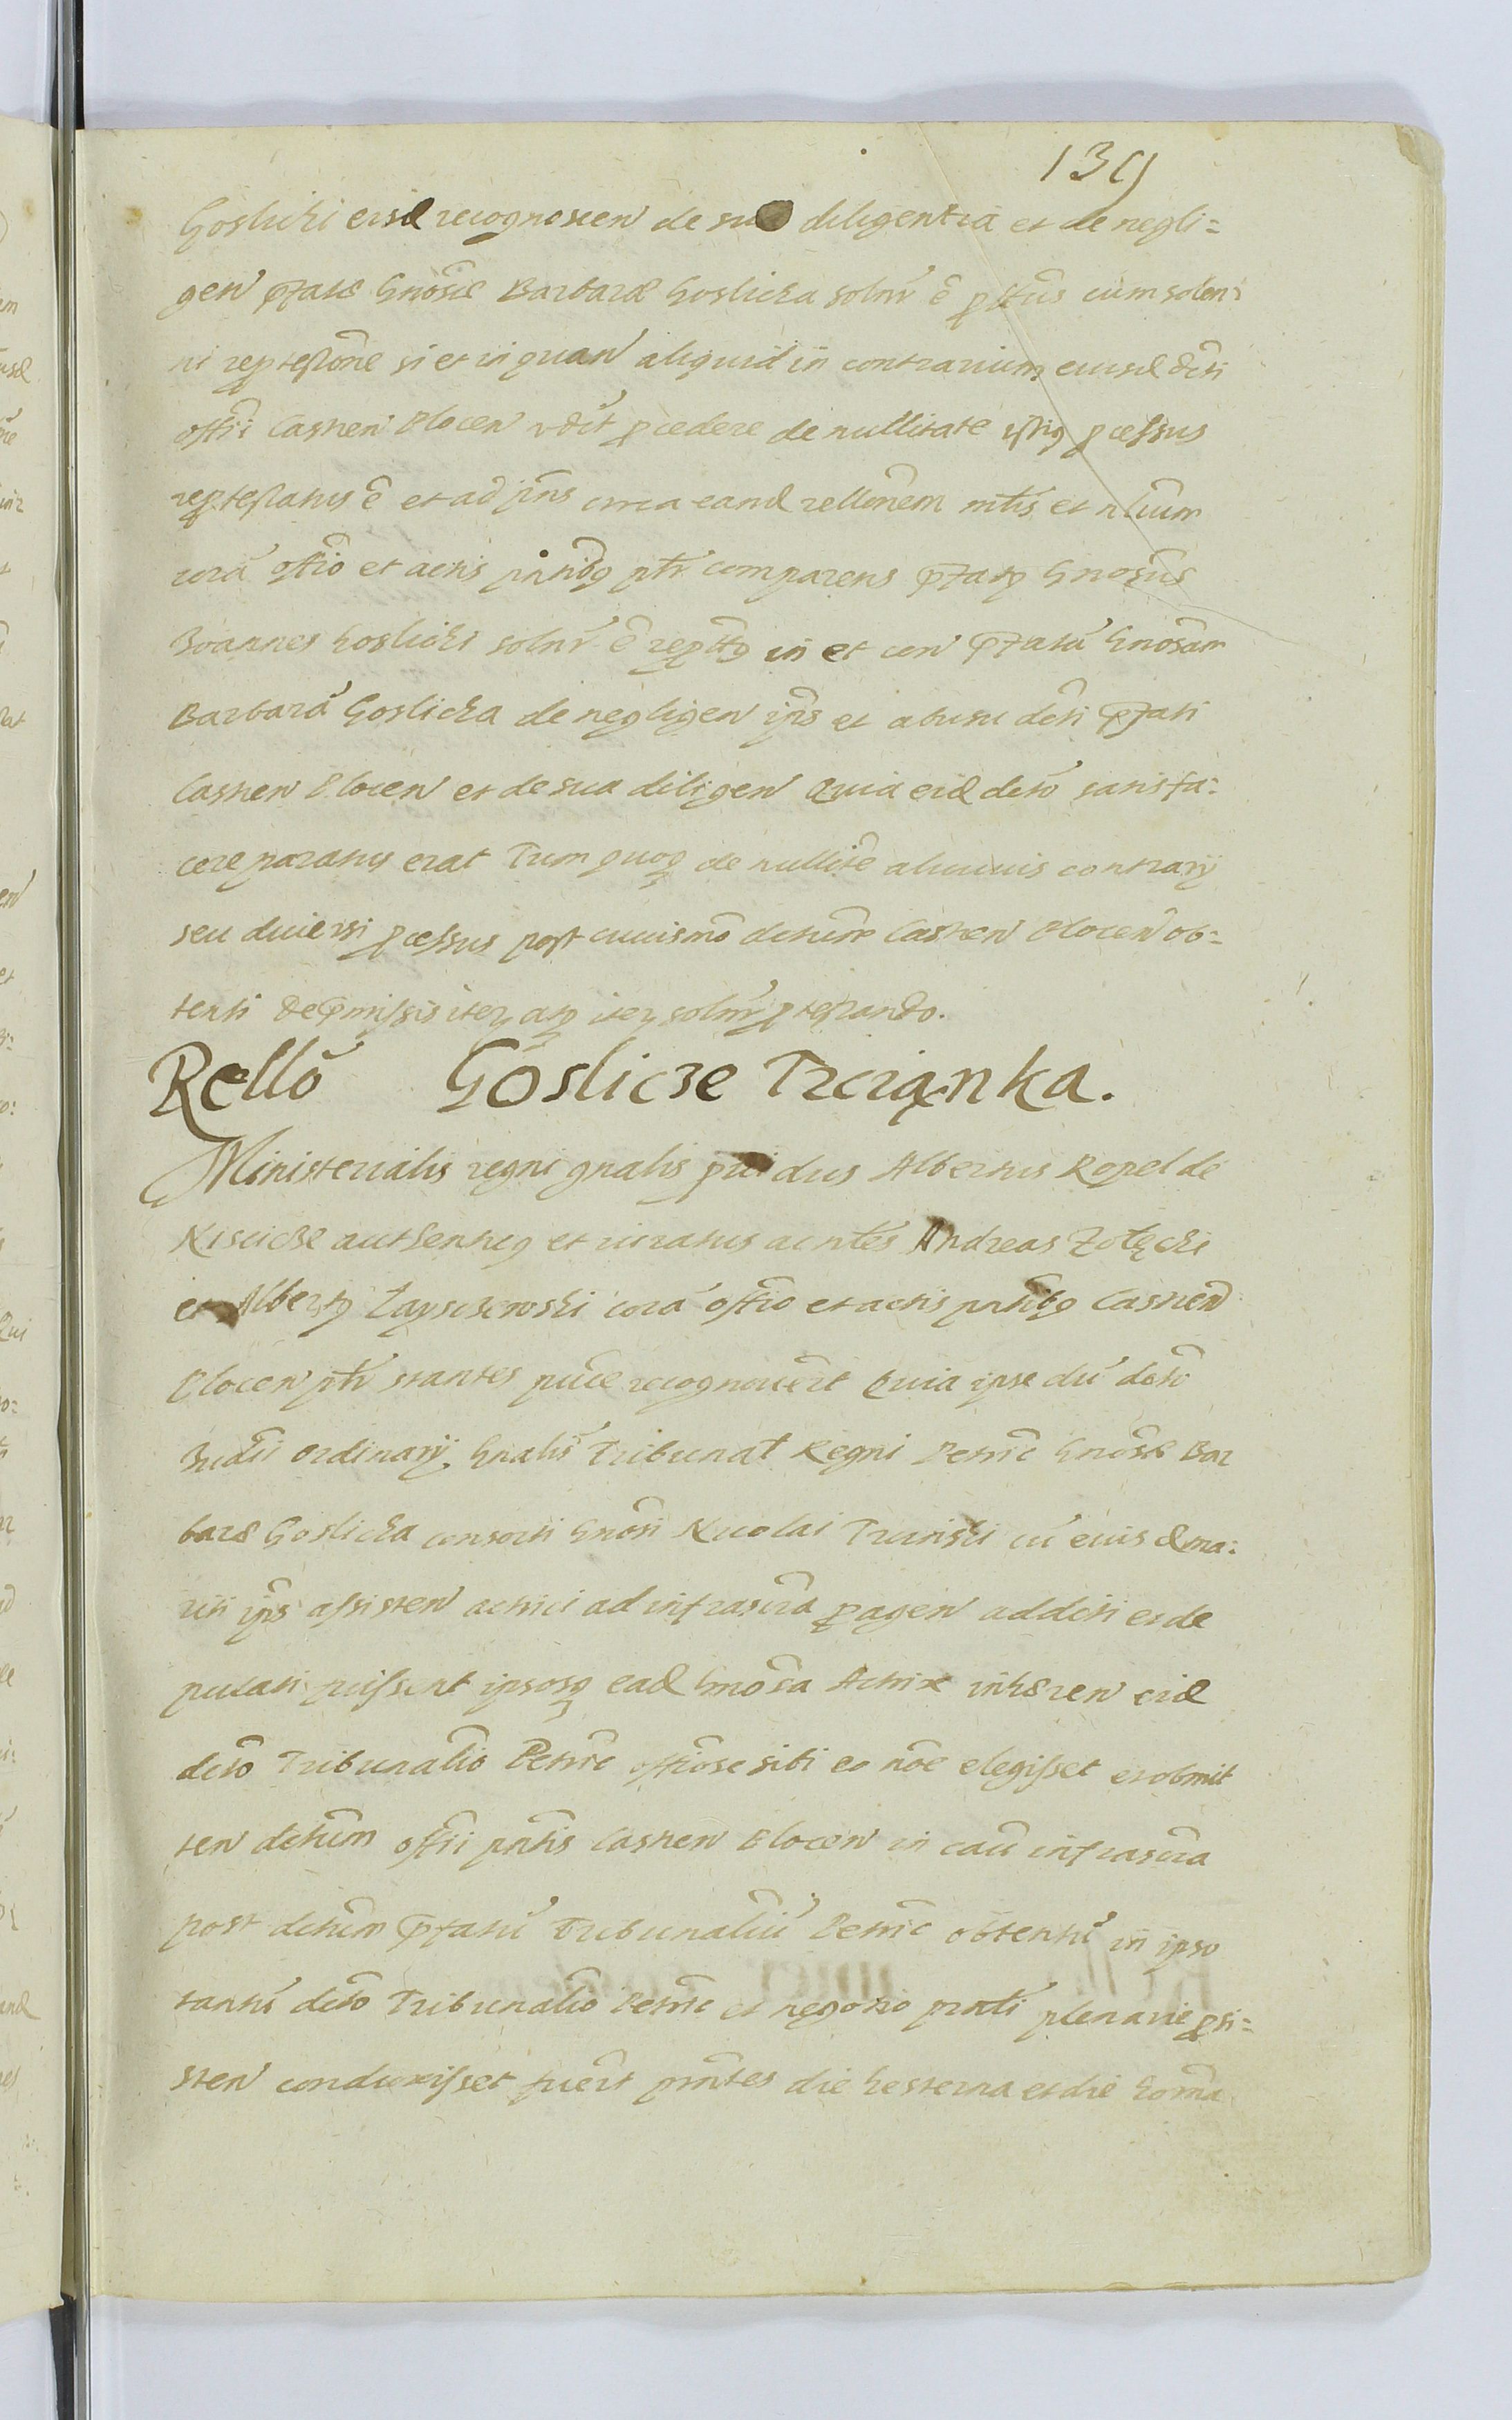 139
Goslicki eisd recognoscen de sua diligentia et de negli=
gen pfatae Gnosae Barbarae Goslicka solnr e ptus cum solen=
ni reprotestone si et in quan aliquid in contrarium eiusd dcti
offii Castren Plocen vdt pcedere de nullitate istig pcessus
reptestatus e et ad pns circa eand rellonem mtis et nlium
cora offio et actis pntibq ptr comparens pfatq Gnosus
Joannes Goslicki solnr e reptq in et con pfata Gnosam
Barbara Goslicka de negligen ips et abusu dcti pfati
Castren Plocen et de sua diligen Quia eid dcto satisfa=
cere paratus erat Tum quoq de nullite alicuius contrarij
seu diuersi pcessus post cuiusmo dctum Castren Plocen ob=
tenti de pmissis iter atq iter solnr ptestando.
Rello Goslicze Trcianka.
Ministerialis regni gnalis puidus Albertus Kopel de
Kisielie authenticq et iuratus ac ntes Andreas Zołęcki
et Albertq cora offio et actis pntibq Castren
Plocen ptr stantes puce recognouert Quia ipse du dcto
Judii ordinarij Gnalis Tribunal Regni Petric Gnosae Bar
barae Goslicka consorti Gnosi Nicolai Trcinski cu eiusd ma=
riti ips assisten actrici ad infrascra pagen additi et de
putati fuissent ipsosq ead Gnosa Actrix inhaeren eid
dcto Tribunalio Petric offiose sibi eo noe elegisset et obmit
ten dctum offii pntis Castren Plocen in cau infrascra
post dctum pfatu Tribunaliu Petric obtentu in ipso
tantu dcto Tribunalio Petric et negotio pnti plenarie psi=
sten conduxisset fuert pntes die hesterna et die hodrna